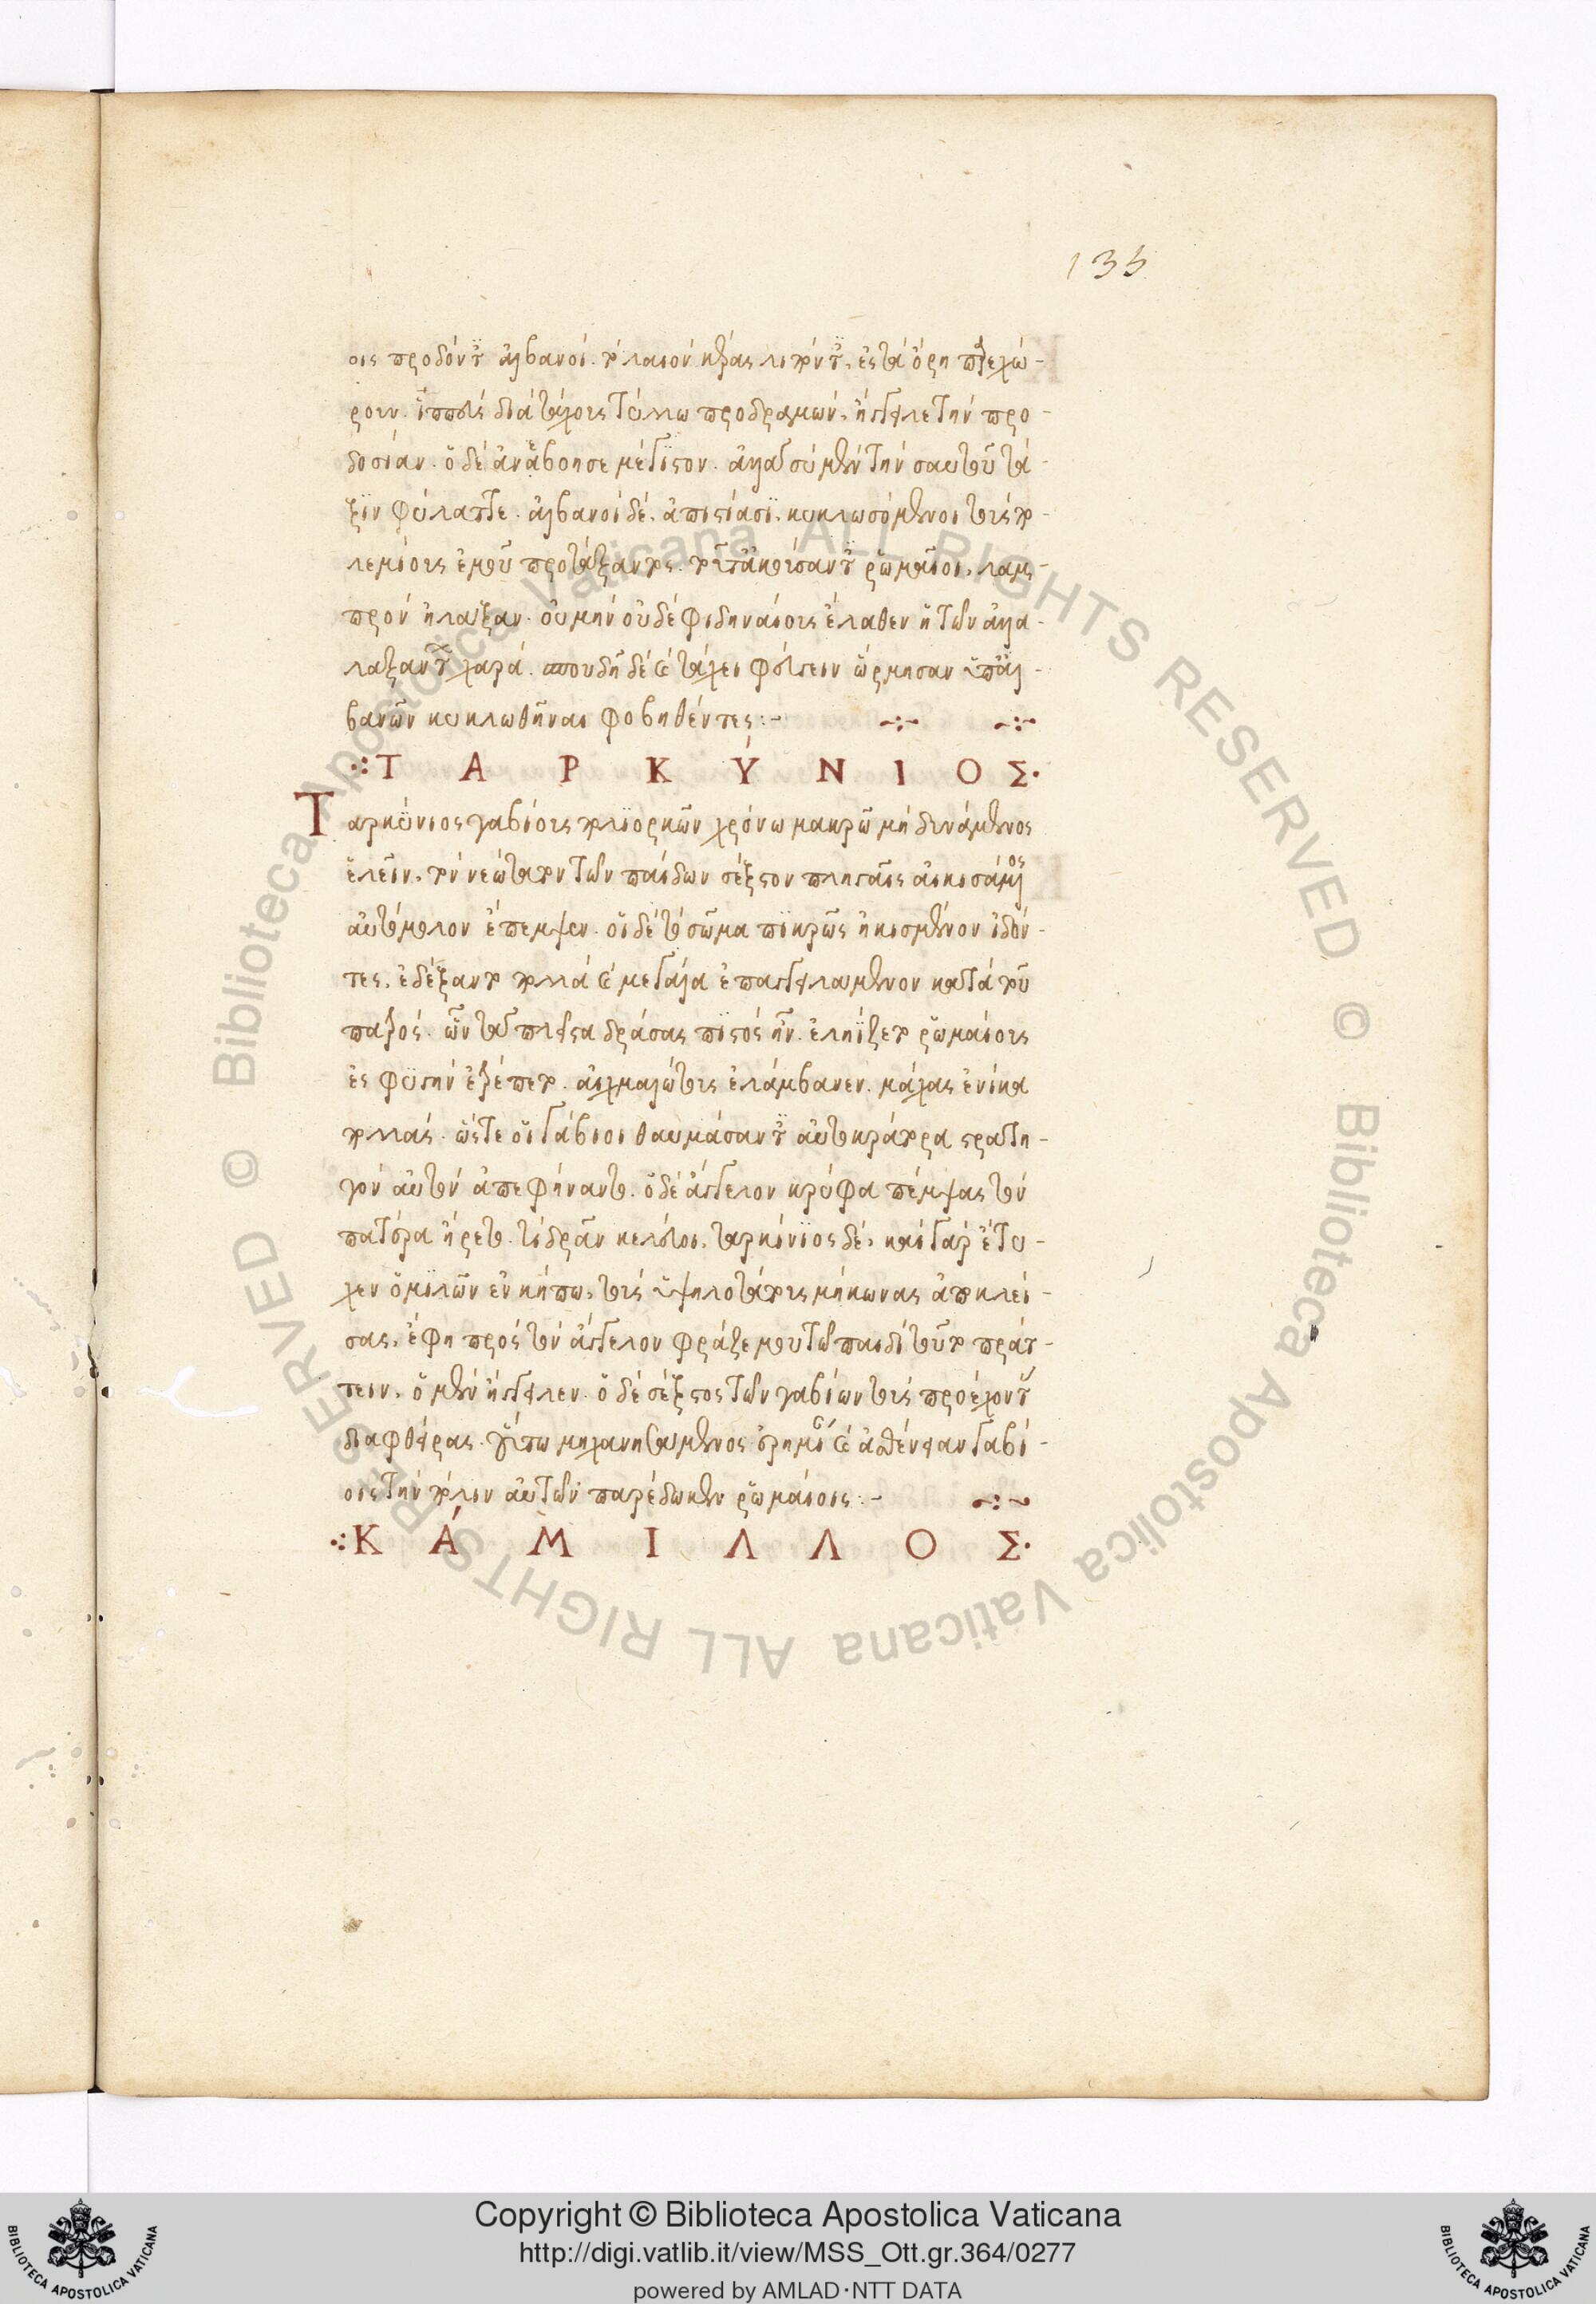 135
οις προδόντες ἀλβανοί. τὸ λαιὸν κέρας λιπόντες, ἐς τὰ ὄρη ὑπεχώ-
ρουν. ἱππεὺς διὰ τάχους τύλλω προδραμών, ἤγγειλε τὴν προ-
δοσίαν. ὁ δὲ ἀνεβόησε μέγιστον. ἀλλὰ σὺ μὲν τὴν σαυτοῦ τά-
ξιν φύλαττε. ἀλβανοὶ δὲ, ἀπίασι, κυκλωσόμενοι τοὺς πο-
λεμίους ἐμοῦ προστάξαντος. τοῦτ' ἀκούσαντες ῥωμαῖοι, λαμ-
πρὸν ἠλάλαξαν. οὐ μὴν οὐδὲ φιδηναίους ἔλαθεν ἡ τῶν ἀλα-
λαξάντων χαρά. σπουδῇ δὲ καὶ τάχει φεύγειν ὥρμησαν ὑπ' ἀλ-
βανῶν κυκλωθῆναι φοβηθέντες:-
ΤΑΡΚΎΝΙΟΣ
Ταρκύνιος γαβίους πολιορκῶν χρόνω μακρῶ μὴ δυνάμενος
ἑλεῖν, τὸν νεώτατον τῶν παίδων σέξστον πληγαῖς αἰκισάμενος
αὐτόμολον ἔπεμψεν. οἱ δὲ τὸ σῶμα πικρῶς ἠκισμένον ἰδόν-
τες, ἐδέξαντο πολλὰ καὶ μεγάλα ἐπαγγειλάμενον κατὰ τοῦ
πατρός. ὧν τὰ πλεῖστα δράσας πιστὸς ἦν. ἐληΐζετο ῥωμαίους
ἐς φυγὴν ἐτρέπετο. αἰχμαλώτους ἐλάμβανεν. μάχας ἐνίκα
πολλάς. ὥστε οἱ γάβιοι θαυμάσαντες αὐτοκράτορα στρατη-
γὸν αὐτὸν ἀπεφήναντο. ὁ δὲ ἄγγελον κρύφα πέμψας τὸν
πατέρα ἤρετο. τί δρᾶν κελεύοι, ταρκύνιος δὲ, καὶ γὰρ ἔτυ-
χεν ὁμιλῶν ἐν κήπω, τοὺς ὑψηλοτάτους μήκωνας ἀποκλεί-
σας, ἔφη πρὸς τὸν ἄγγελον φράζε μου τῶ παιδὶ τοῦτο πράτ-
τειν, ὁ μὲν ἤγγειλεν. ὁ δὲ σέξστος τῶν γαβίων τοὺς προέχοντας
διαφθείρας. οὕτω μηχανησάμενος ἔρημον καὶ ἀσθένειαν γαβί-
οις τὴν πόλιν αὐτῶν παρέδωκεν ῥωμαίοις:-
ΚΆΜΙΛΛΟΣ
© Biblioteca Apostolica Vaticana ALL RIGHTS RESERVED © Biblioteca Apostolica Vaticana ALL RIGHTS RESERVED
Copyright © Biblioteca Apostolica Vaticana
http://digi.vatlib.it/view/MSS_Ott.gr.364/0277
powered by AMLAD·NTT DATA
BIBLIOTECA APOSTOLICA VATICANA
BIBLIOTECA APOSTOLICA VATICANA